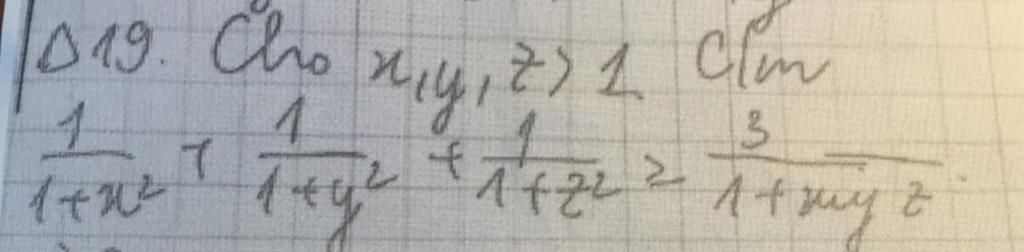 Δ19. Cho x,y,z>1 C/m
1/(1+x²) + 1/(1+y²) + 1/(1+z²) ≥ 3/(1+xyz).